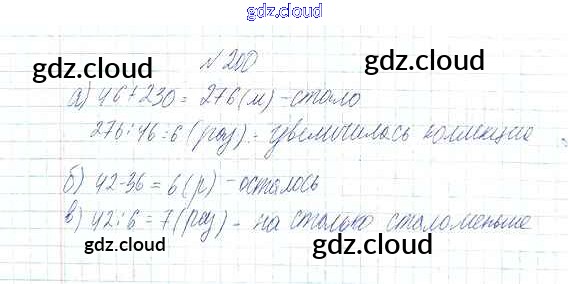 gdz.cloud
№ 200
gdz.cloud gdz.cloud
а) 46+230 = 276 (м) - стало
276:46=6 (раз) - увеличилась коллекция
б) 42-36 = 6 (р) - осталось
gdz.cloud gdz.cloud
в) 42:6=7 (раз) - на столько стало меньше
gdz.cloud gdz.cloud